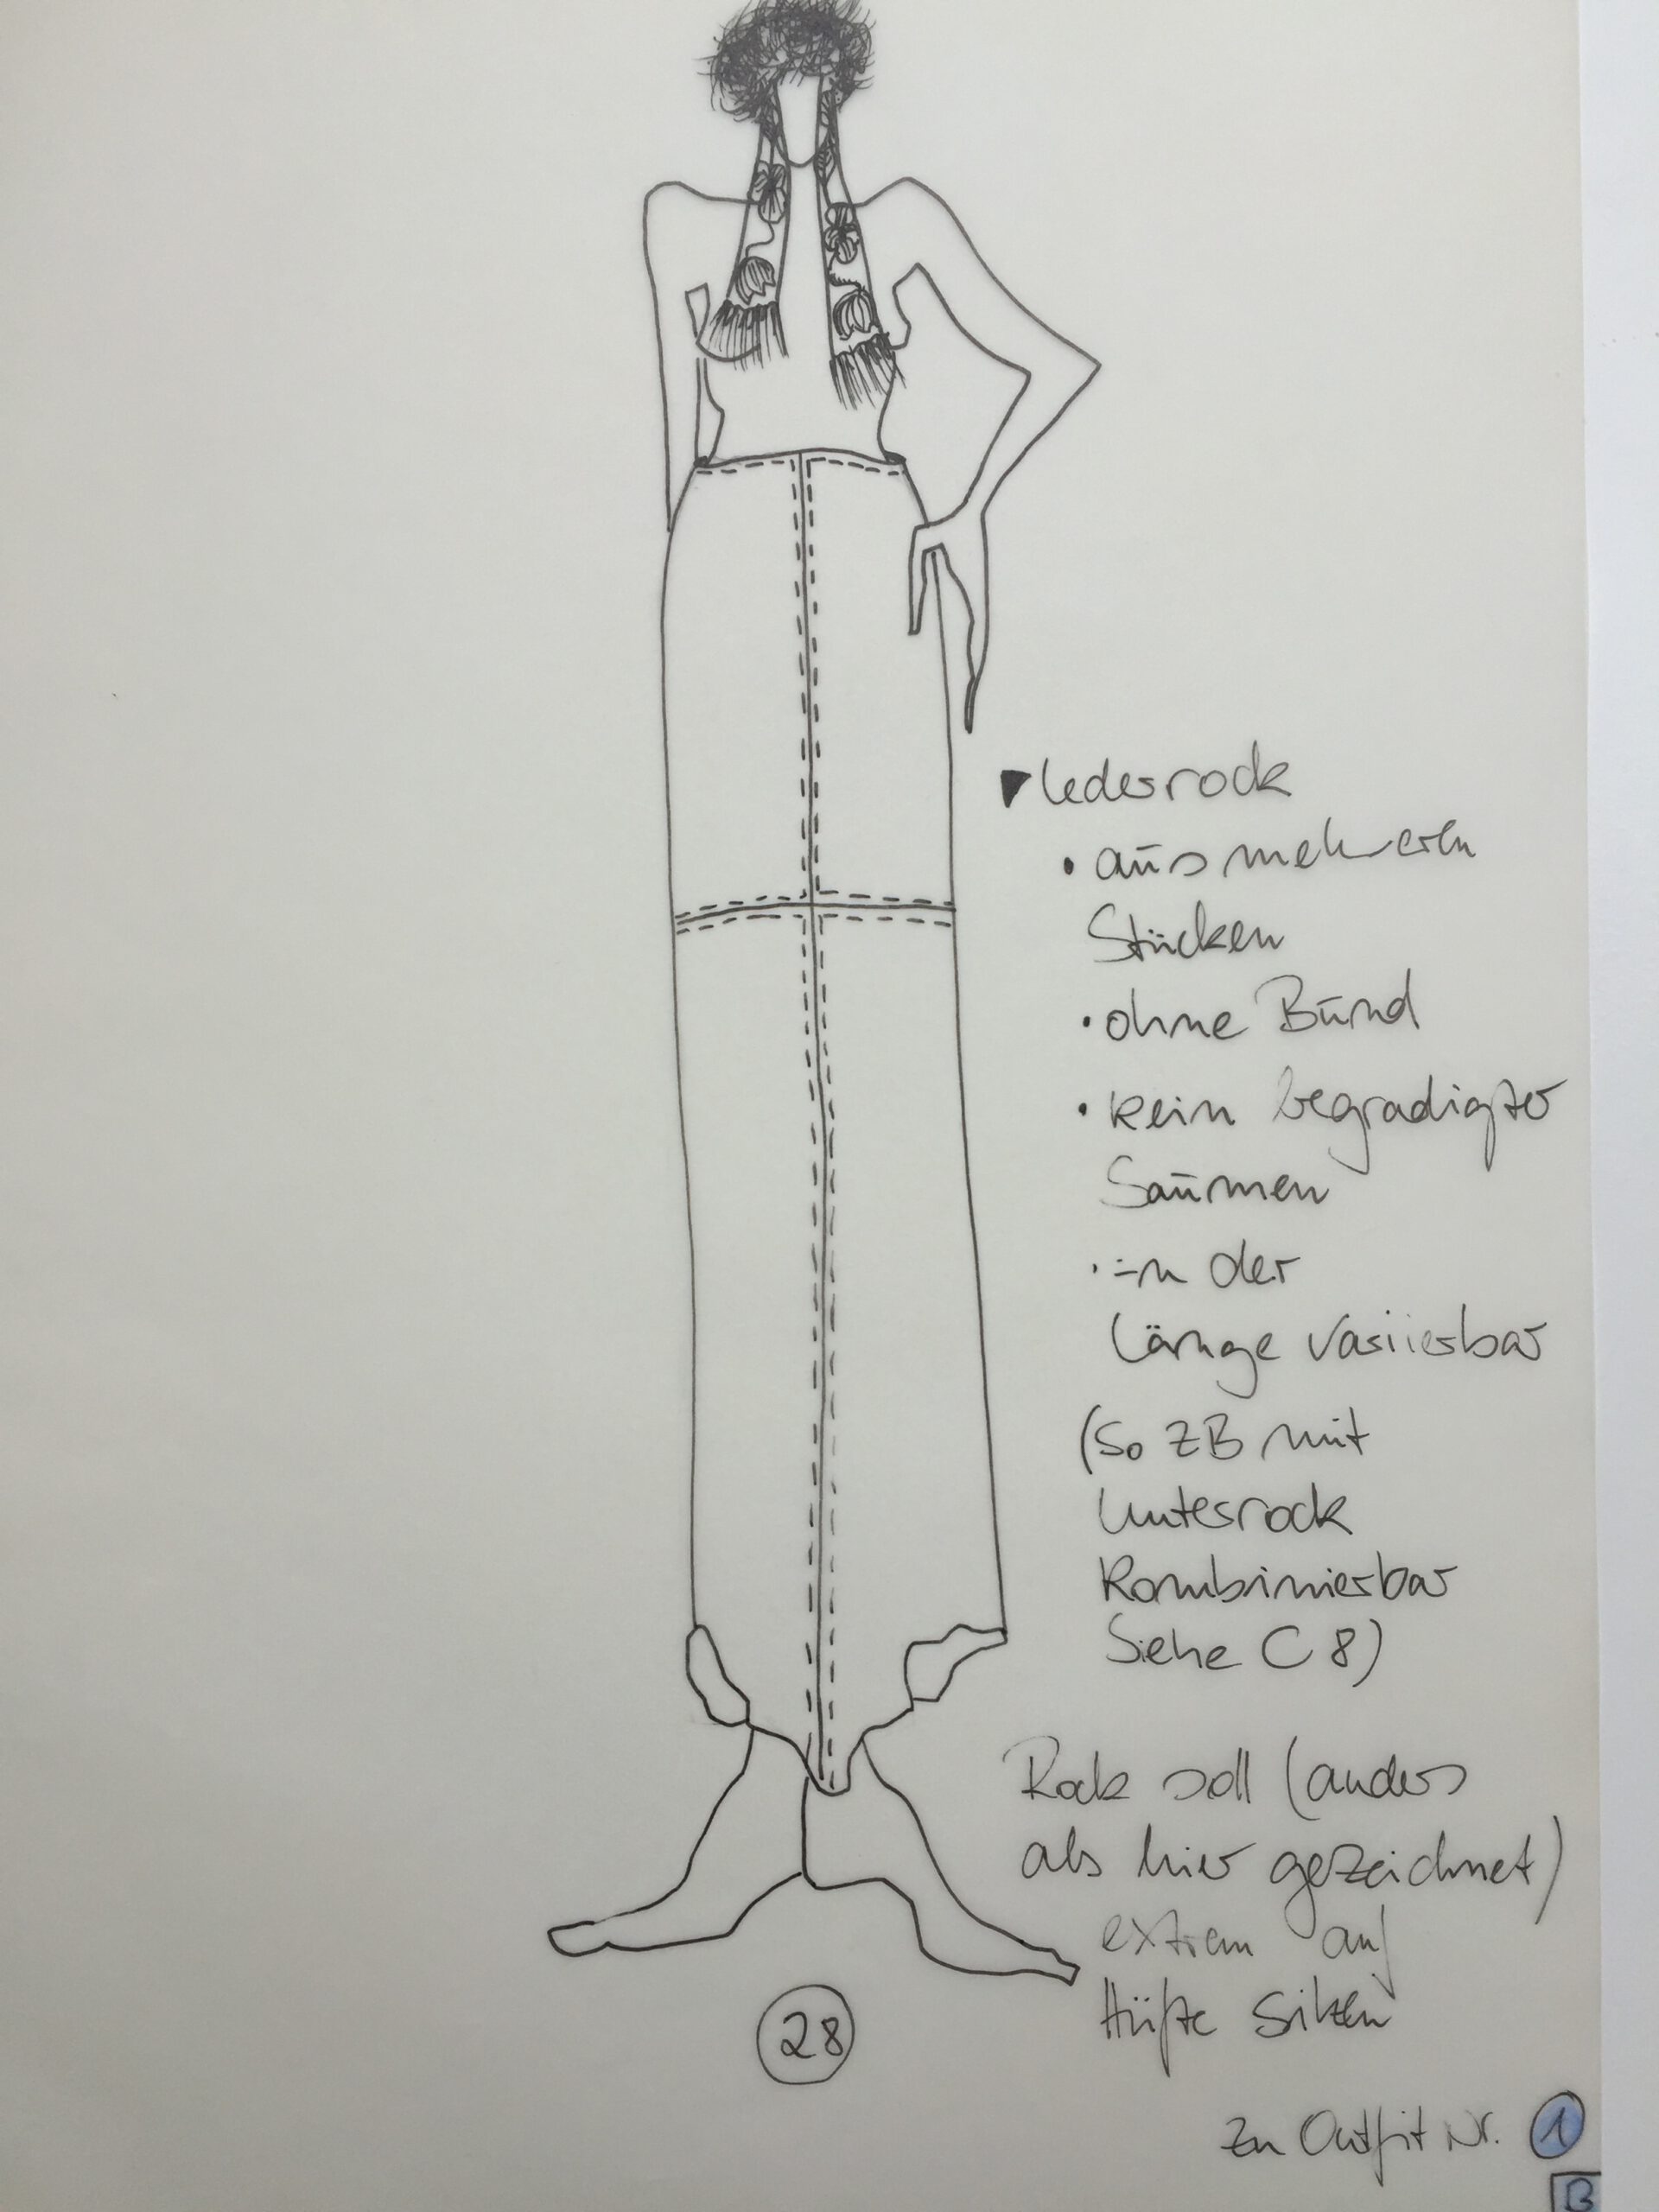 Lederrock
• aus mehreren
Stücken
• ohne Bund
• kein begradigter
Saumen
• in der
Länge variierbar
(So ZB mit
Unterrock
Kombinierbar
Siehe C 8)
Rock soll (anders
als hier gezeichnet)
extrem auf
Hüfte sitzen
28
Zu Outfit Nr. 1
B